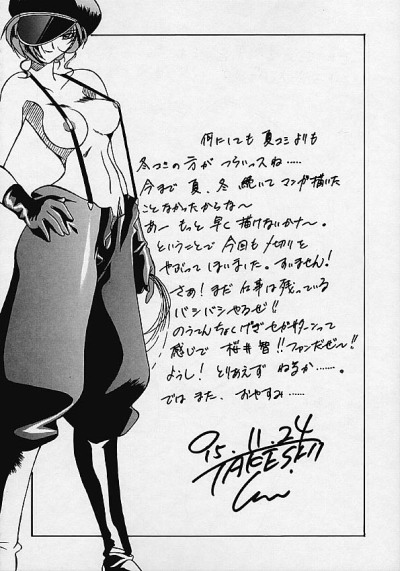 何にしても 夏コミよりも
冬コミの方が つらいっスね……
今まで 夏、冬 続いて マンガ描いた
ことなかったからな〜
あー もっと 早く 描けないかナ〜。
ということで 今回も 〆切りを
やぶって しまいました。すいません!
さぁ! まだ 仕事は 残っている
バシバシやるぜ!!
のうてんちょくげきセガサターンって
感じで 桜井 智!!ファンだぜ〜!!
ようし! とりあえず ねるか……。
では また、おやすみ……
'95.11.24
TAKESHI